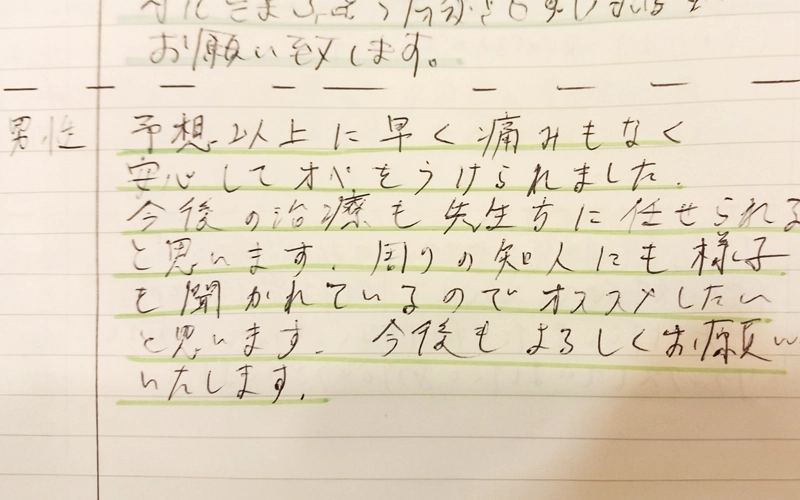 お願い致します。
男性 予想以上に早く痛みもなく
安心してオペをうけられました.
今後の治療も先生方に任せられる
と思います. 周りの知人にも様子
を聞かれているのでオススメしたい
と思います. 今後もよろしくお願い
いたします.